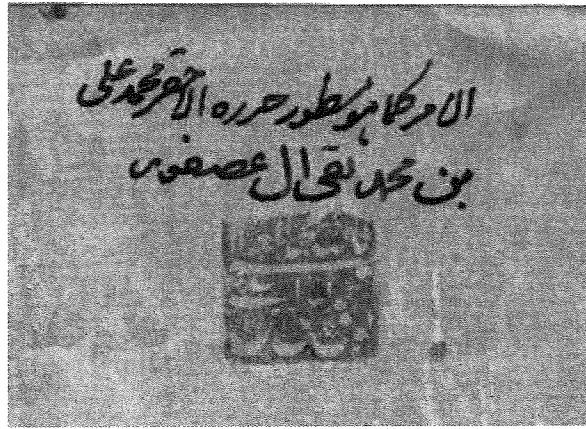 الامر كما هو مسطور حرره الاحقر محمد علي
بن محمد تقي ال عصفور